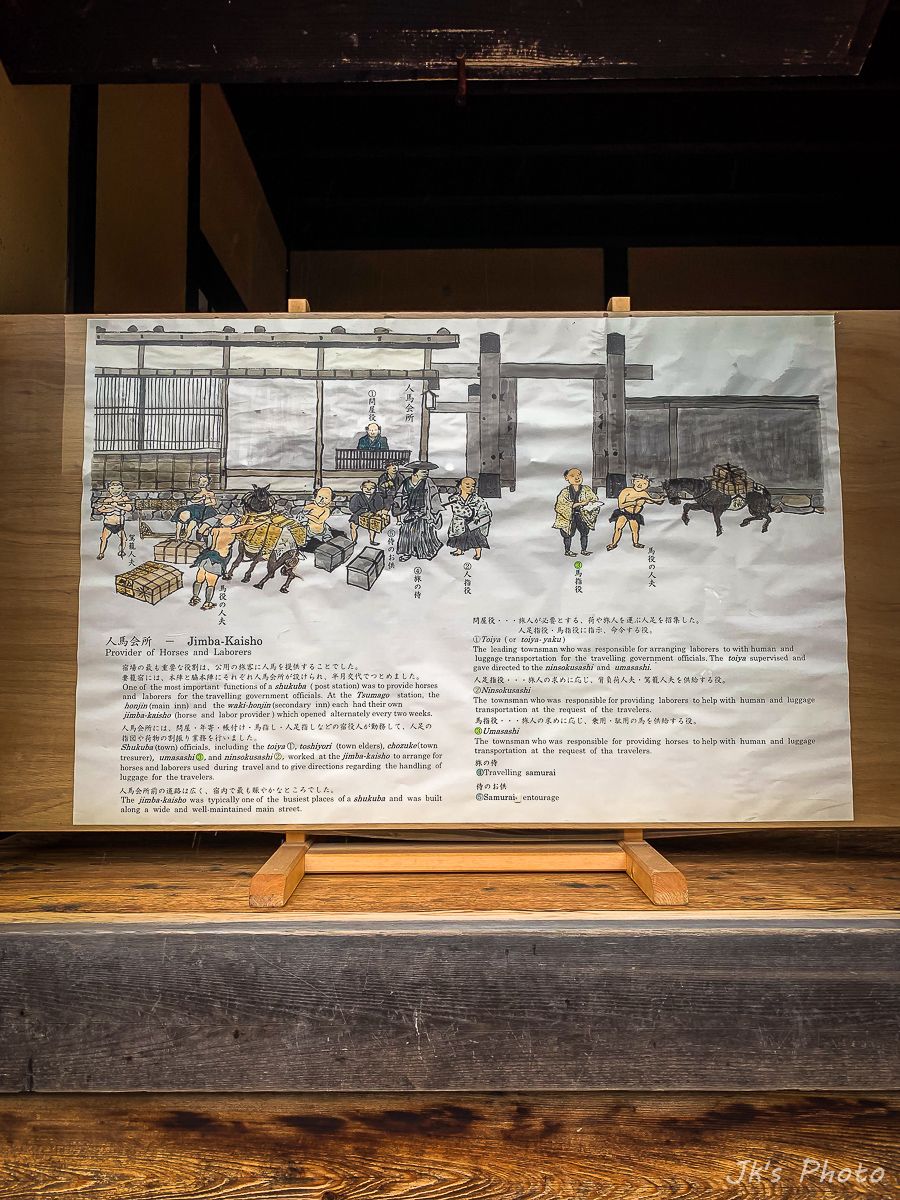 人馬会所
①問屋役
駕籠人夫
馬役の人夫
⑤侍のお供
④旅の侍
②人指役
③馬指役
馬役の人夫
人馬会所 － Jimba-Kaisho
Provider of Horses and Laborers
宿場の最も重要な役割は、公用の旅客に人馬を提供することでした。
妻籠宿には、本陣と脇本陣にそれぞれ人馬会所が設けられ、半月交代でつとめました。
One of the most important functions of a shukuba ( post station) was to provide horses
and laborers for the travelling government officials. At the Tsumago station, the
honjin (main inn) and the waki-honjin (secondary inn) each had their own
jimba-kaisho (horse and labor provider) which opened alternately every two weeks.
人馬会所には、問屋・年寄・帳付け・馬指し・人足指しなどの宿役人が勤務して、人足の
指図や荷物の割振り業務を行いました。
Shukuba (town) officials, including the toiya ①, toshiyori (town elders), chozuke (town
tresurer), umasashi ③, and ninsokusashi ②, worked at the jimba-kaisho to arrange for
horses and laborers used during travel and to give directions regarding the handling of
luggage for the travelers.
人馬会所前の道路は広く、宿内で最も賑やかなところでした。
The jimba-kaisho was typically one of the busiest places of a shukuba and was built
along a wide and well-maintained main street.
問屋役・・・旅人が必要とする、荷や旅人を運ぶ人足を招集した。
人足指役・馬指役に指示、命令する役。
①Toiya ( or toiya-yaku )
The leading townsman who was responsible for arranging laborers to with human and
luggage transportation for the travelling government officials. The toiya supervised and
gave directed to the ninsokusashi and umasashi.
人足指役・・・旅人の求めに応じ、背負荷人夫・駕籠人夫を供給する役。
②Ninsokusashi
The townsman who was responsible for providing laborers to help with human and luggage
transportation at the request of the travelers.
馬指役・・・旅人の求めに応じ、乗用・駄用の馬を供給する役。
③Umasashi
The townsman who was responsible for providing horses to help with human and luggage
transportation at the request of tha travelers.
旅の侍
④Travelling samurai
侍のお供
⑤Samurai- entourage
Jk's Photo